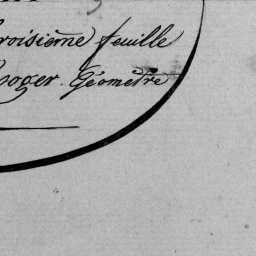 roisième feuille
oger Géomètre